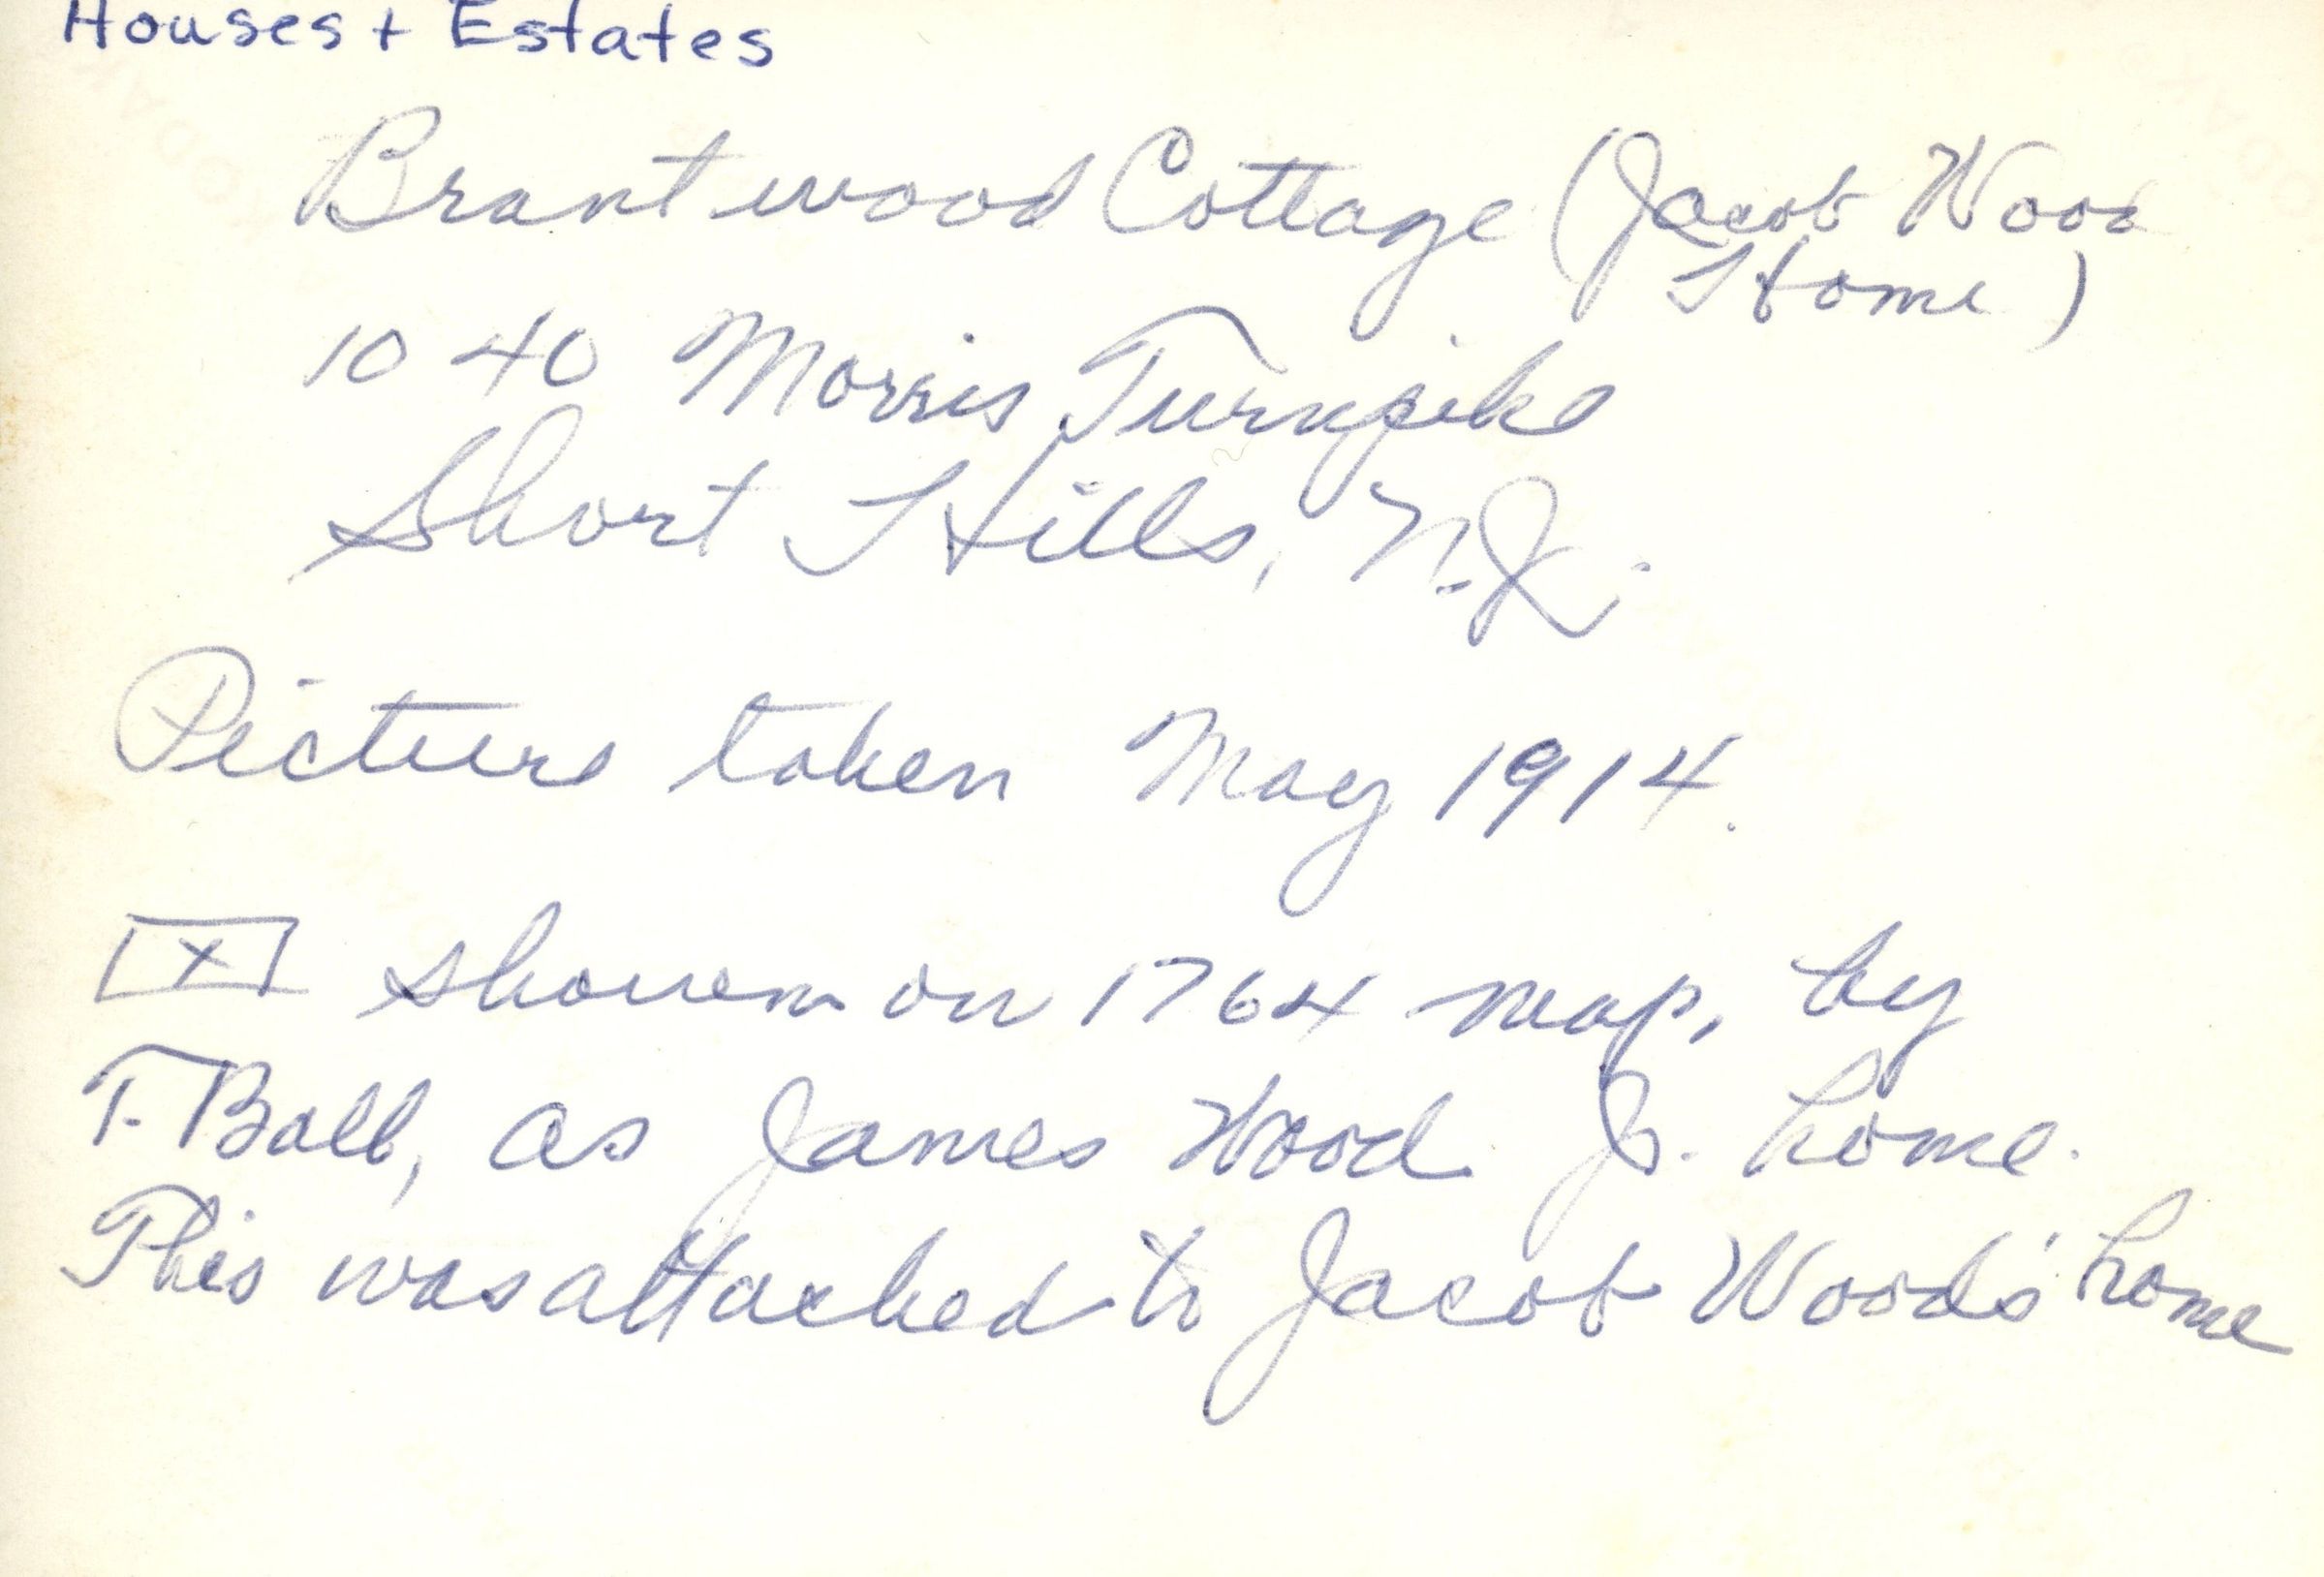 Houses + Estates
Brantwood Cottage (Jacob Wood
Home)
1040 Morris Turnpike
Short Hills, N.J.
Picture taken May 1914.
[X] shown on 1764 map, by
T. Ball, as James Wood Jr. home.
This was attached to Jacob Woods' home